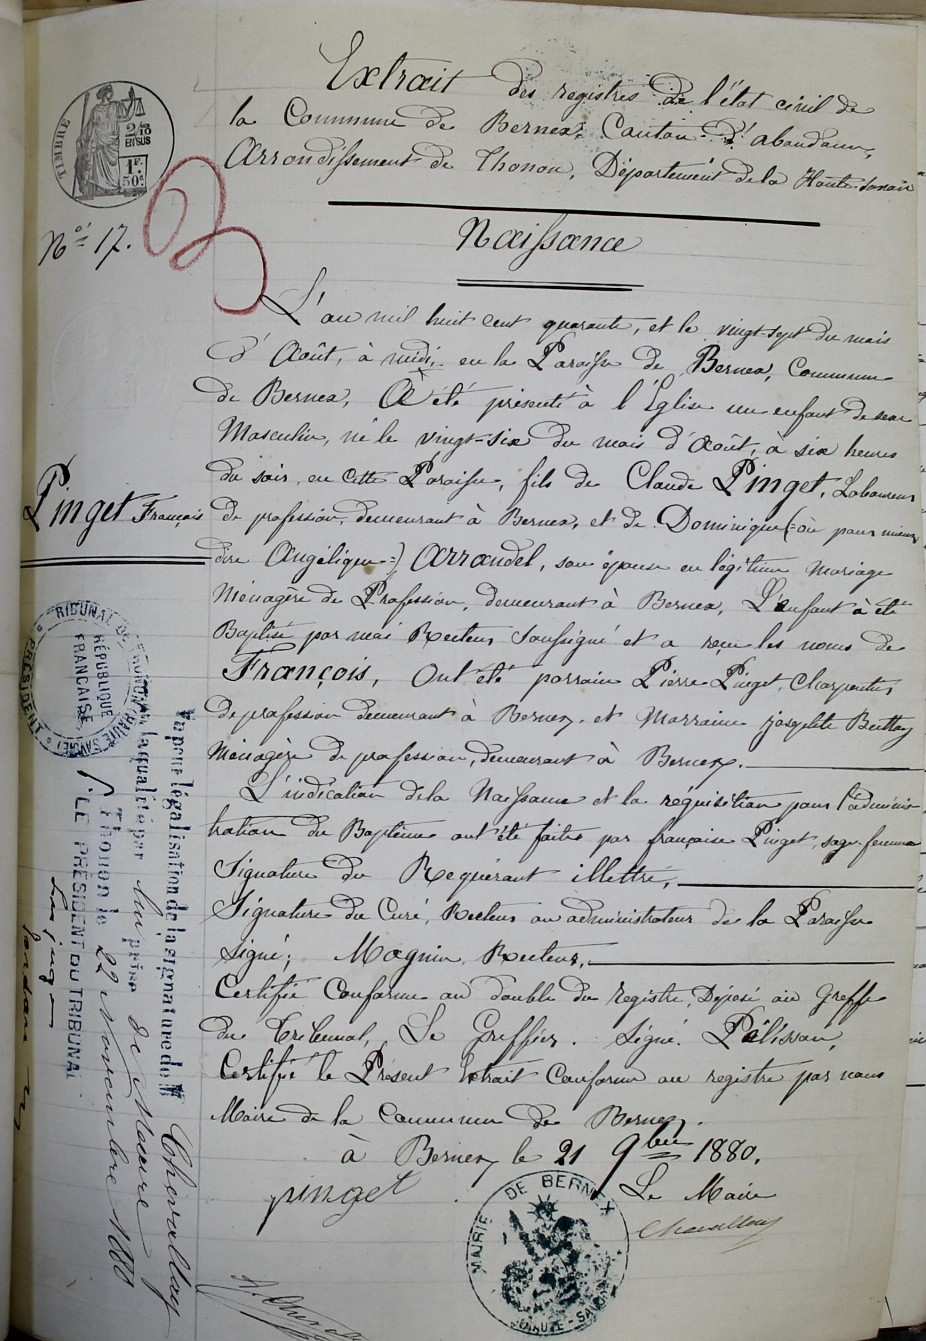 Extrait des registres de l'état civil de
la Commune de Bernex, Canton d'abondance,
Arrondissement de Thonon, Département de la Haute-Savoie
TIMBRE
2/10
EN SUS
1F.
50c.
N° 17.
Naissance
L'an mil huit cent quarante, et le vingt-sept du mois
d'Août, à midi, en la Paroisse de Bernex, Commune
de Bernex, A été présenté à l'Eglise un enfant de sexe
Masculin, né le vingt-six du mois d'Août, à six heures
du soir, en cette Paroisse, fils de Claude Pinget, Laboureur
de profession, demeurant à Bernex, et de Dominique (=ou pour mieux
dire Angélique=) Arrandel, son épouse en légitime Mariage
Ménagère de Profession, demeurant à Bernex, L'enfant à été
Baptisé par moi Recteur Soussigné et a reçu les noms de
François, Ont été parrain Pierre Pinget, Charpentier
de profession demeurant à Bernex, et Marraine Josephte Buttay
Ménagère de profession, demeurant à Bernex.
L'indication de la Naissance et la réquisition pour l'adminis-
tration du Baptême ont été faites par françoise Pinget, sage-femme
Signature du Requérant illettré,
Signature du Curé, Recteur ou administrateur de la Paroisse
Signé; Magnin Recteur,
Certifié Conforme au double du registre, Déposé au Greffe
du Tribunal, Le Greffier. Signé. Pâlisson,
Certifié le Présent Extrait Conforme au registre par nous
Maire de la Commune de Bernex.
à Bernex le 21 9bre 1880.
Le Maire
pinget
Chevallay
MAIRIE DE BERNEX
HAUTE-SAVOIE
Pinget François
TRIBUNAL DE THONON (HAUTE SAVOIE)
PRÉSIDENT
RÉPUBLIQUE
FRANÇAISE
Vu pour légalisation de la signature de M Chevallay
la qualité par lui prise de Maire
Thonon le 22 Novembre 1880
P. LE PRÉSIDENT DU TRIBUNAL
Le juge